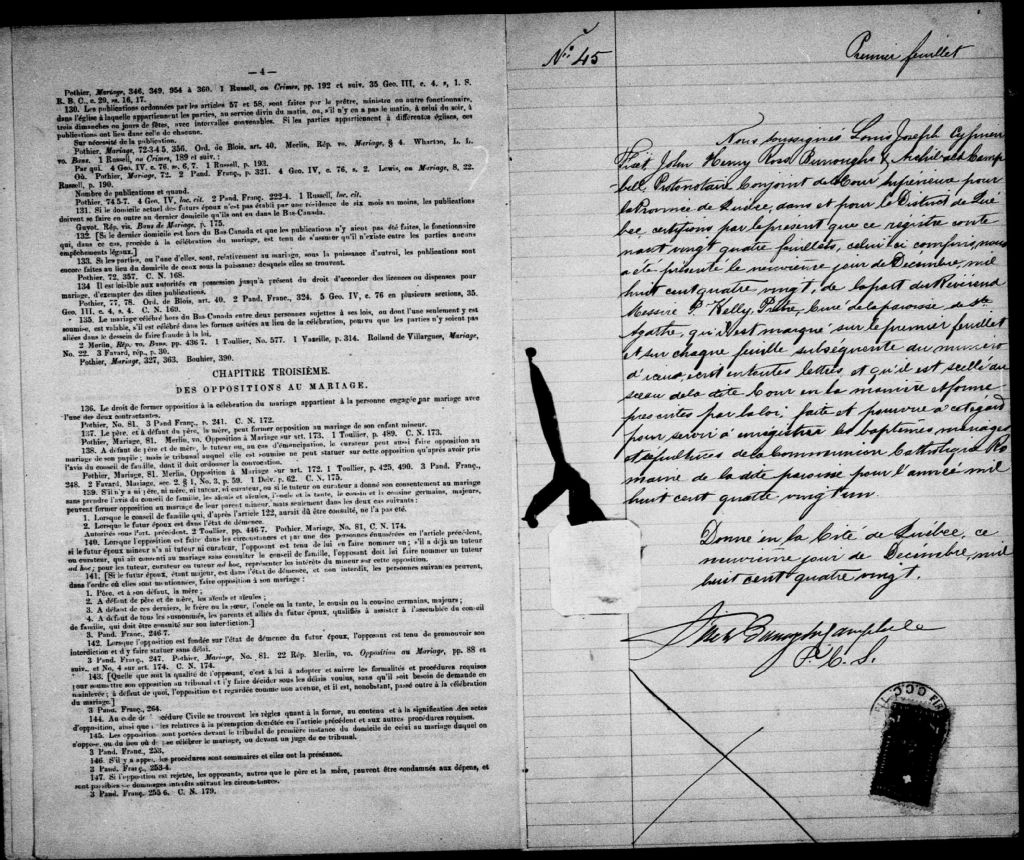 — 4 —
Pothier, Mariage, 346, 349, 954 à 360. 1 Russell, on Crimes, pp. 192 et suiv. 35 Geo. III, c. 4. s, 1. S.
R. B. C., c. 20, ss. 16, 17.
130. Les publications ordonnées par les articles 57 et 58, sont faites par le prêtre, ministre ou autre fonctionnaire,
dans l'église à laquelle appartiennent les parties, au service divin du matin, ou, s'il n'y en a pas le matin, à celui du soir, à
trois dimanches ou jours de fêtes, avec intervalles convenables. Si les parties appartiennent à différentes églises, ces
publications ont lieu dans celle de chacune.
Sur nécessité de la publication.
Pothier, Mariage, 72-3 4 5, 356. Ord. de Blois, art. 40. Merlin, Rép. vo. Mariage, § 4. Wharton, L. L.
vo. Bans. 1 Russell, on Crimes, 189 et suiv. :
Par qui. 4 Geo. IV, c. 76, s. 6, 7. 1 Russell, p. 193.
Où. Pothier, Mariage, 72. 2 Pand. Franç., p. 321. 4 Geo. IV, c. 76, s. 2. Lewis, on Mariage, 8, 22.
Russell, p. 190.
Nombre de publications et quand.
Pothier, 74 5-7. 4 Geo. IV, loc. cit. 2 Pand. Franç. 222-4. 1 Russell, loc. cit.
131. Si le domicile actuel des futurs époux n'est pas établi par une résidence de six mois au moins, les publications
doivent se faire en outre au dernier domicile qu'ils ont eu dans le Bas-Canada.
Guyot. Rép. vis. Bans de Mariage, p. 175.
132. [Si le dernier domicile est hors du Bas Canada et que les publications n'y aient pas été faites, le fonctionnaire
qui, dans ce cas, procède à la célébration du mariage, est tenu de s'assurer qu'il n'existe entre les parties aucuns
empêchements légaux.]
133. Si les parties, ou l'une d'elles, sont, relativement au mariage, sous la puissance d'autrui, les publications sont
encore faites au lieu du domicile de ceux sous la puissance desquels elles se trouvent.
Pothier, 72, 357. C. N. 168.
134 Il est loisible aux autorités en possession jusqu'à présent du droit d'accorder des licences ou dispenses pour
mariage, d'exempter des dites publications.
Pothier, 77, 78. Ord. de Blois, art. 40. 2 Pand. Franç., 324. 5 Geo. IV, c. 76 en plusieurs sections, 35.
Geo. III, c. 4, s. 4. C. N. 169.
135. Le mariage célébré hors du Bas-Canada entre deux personnes sujettes à ses lois, ou dont l'une seulement y est
soumise, est valable, s'il est célébré dans les formes usitées au lieu de la célébration, pourvu que les parties n'y soient pas
allées dans le dessein de faire fraude à la loi.
2 Merlin, Rép. vo. Bans, pp. 436 7. 1 Toullier, No. 577. 1 Vazeille, p. 314. Rolland de Villargues, Mariage,
No. 22. 3 Favard, rép., p. 30.
Pothier, Mariage, 327, 363. Bouhier, 390.
CHAPITRE TROISIÈME.
DES OPPOSITIONS AU MARIAGE.
136. Le droit de former opposition à la célébration du mariage appartient à la personne engagée par mariage avec
l'une des deux contractantes.
Pothier, No. 81. 3 Pand Franç., p. 241. C. N. 172.
137. Le père, et à défaut du père, la mère, peut former opposition au mariage de son enfant mineur.
Pothier, Mariage, 81. Merlin, vo. Opposition à Mariage sur art. 173. 1 Touillier, p. 489. C. N. 173.
138. A défaut de père et de mère, le tuteur, ou, au cas d'émancipation, le curateur peut aussi faire opposition au
mariage de son pupille; mais le tribunal auquel elle est soumise ne peut statuer sur cette opposition qu'après avoir pris
l'avis du conseil de famille, dont il doit ordonner la convocation.
Pothier, Mariage, 81. Merlin, Opposition à Mariage sur art. 172. 1 Toullier, p. 425, 490. 3 Pand. Franç.,
248. 2 Favard, Mariage, sec. 2. § 1, No. 3, p. 59. 1 Delv. p. 62. C. N. 175.
139. S'il n'y a ni père, ni mère, ni tuteur, ni curateur, ou si le tuteur ou curateur a donné son consentement au mariage
sans prendre l'avis du conseil de famille, les aïeuls et aïeules, l'oncle et la tante, le cousin et la cousine germains, majeurs,
peuvent former opposition au mariage de leur parent mineur, mais seulement dans les deux cas suivants :
1. Lorsque le conseil de famille qui, d'après l'article 122, aurait dû être consulté, ne l'a pas été.
2. Lorsque le futur époux est dans l'état de démence.
Autorités sous l'art. précédent. 2 Toullier, pp. 446 7. Pothier, Mariage, No. 81, C. N. 174.
140. Lorsque l'opposition est faite dans les circonstances et par une des personnes énumérées en l'article précédent,
si le futur époux mineur n'a ni tuteur ni curateur, l'opposant est tenu de lui en faire nommer un ; s'il a déjà un tuteur
ou curateur, qui ait consenti au mariage sans consulter le conseil de famille, l'opposant doit lui faire nommer un tuteur
ad hoc ; pour les tuteur, curateur ou tuteur ad hoc, représenter les intérêts du mineur sur cette opposition.
141. [Si le futur époux, étant majeur, est dans l'état de démence, et non interdit, les personnes suivantes peuvent,
dans l'ordre où elles sont mentionnées, faire opposition à son mariage :
1. Père, et à son défaut, la mère ;
2. A défaut de père et de mère, les aïeuls et aïeules ;
3. A défaut de ces derniers, le frère ou la sœur, l'oncle ou la tante, le cousin ou la cousine germains, majeurs ;
4. A défaut de tous les susnommés, les parents et alliés du futur époux, qualifiés à assister à l'assemblée du conseil
de famille, qui doit être consulté sur son interdiction.]
3. Pand. Franç. 246.7.
142. Lorsque l'opposition est fondée sur l'état de démence du futur époux, l'opposant est tenu de promouvoir son
interdiction et d'y faire statuer sans délai.
3 Pand. Franç., 247. Pothier, Mariage, No. 81. 22 Rép. Merlin, vo. Opposition au Mariage, pp. 88 et
suiv. et No. 4 sur art. 174. C. N. 174.
143. [Quelle que soit la qualité de l'opposant, c'est à lui à adopter et suivre les formalités et procédures requises
pour soumettre son opposition au tribunal et l'y faire décider sous les délais voulus, sans qu'il soit besoin de demande en
mainlevée ; à défaut de quoi, l'opposition est regardée comme non avenue, et il est, nonobstant, passé outre à la célébration
du mariage.]
3 Pand. Franç., 264.
144. Au code de procédure Civile se trouvent les règles quant à la forme, au contenu et à la signification des actes
d'opposition, ainsi que relatives à la péremption décrétée en l'article précédent et aux autres procédures requises.
145. Les oppositions sont portées devant le tribunal de première instance du domicile de celui au mariage duquel on
s'oppose, ou du lieu où doit se célébrer le mariage, ou devant un juge de ce tribunal.
3 Pand. Franc., 253.
146. S'il y a appel, les procédures sont sommaires et elles ont la préséance.
3 Pand. Franç., 253-4.
147. Si l'opposition est rejetée, les opposants, autres que le père et la mère, peuvent être condamnés aux dépens, et
sont passibles de dommages intérêts suivant les circonstances.
3 Pand. Franç. 255 6. C. N. 179.
No. 45
Premier feuillet
Nous soussignés Louis Joseph Cyprien
Fiset, John Henry Ross Burroughs & Archibald Camp-
bell, Protonotaire Conjoint de la Cour Supérieure pour
la Province de Québec, dans et pour le District de Qué
bec, certifions par le présent que ce registre conte
nant vingt quatre feuillets, celui ici compris, nous
a été présenté le neuvième jour de Décembre, mil
huit cent quatre vingt, de la part du Révérend
Messire P. Kelly, Prêtre, Curé de la paroisse de Ste
Agathe, qu'il est marqué sur le premier feuillet
et sur chaque feuille subséquente du numéro
d'iceux, écrit en toutes lettres, et qu'il est scellé du
sceau de la dite Cour en la manière et forme
prescrites par la loi; faite et pourvue à cet égard
pour servir à enregistrer les baptêmes, mariages
et sépultures de la Communion Catholique Ro
maine de la dite paroisse pour l'année mil
huit cent quatre vingt un.
Donné en la Cité de Québec, ce
neuvième jour de Décembre, mil
huit cent quatre vingt.
Fiset Burroughs Campbell
P. C. S.